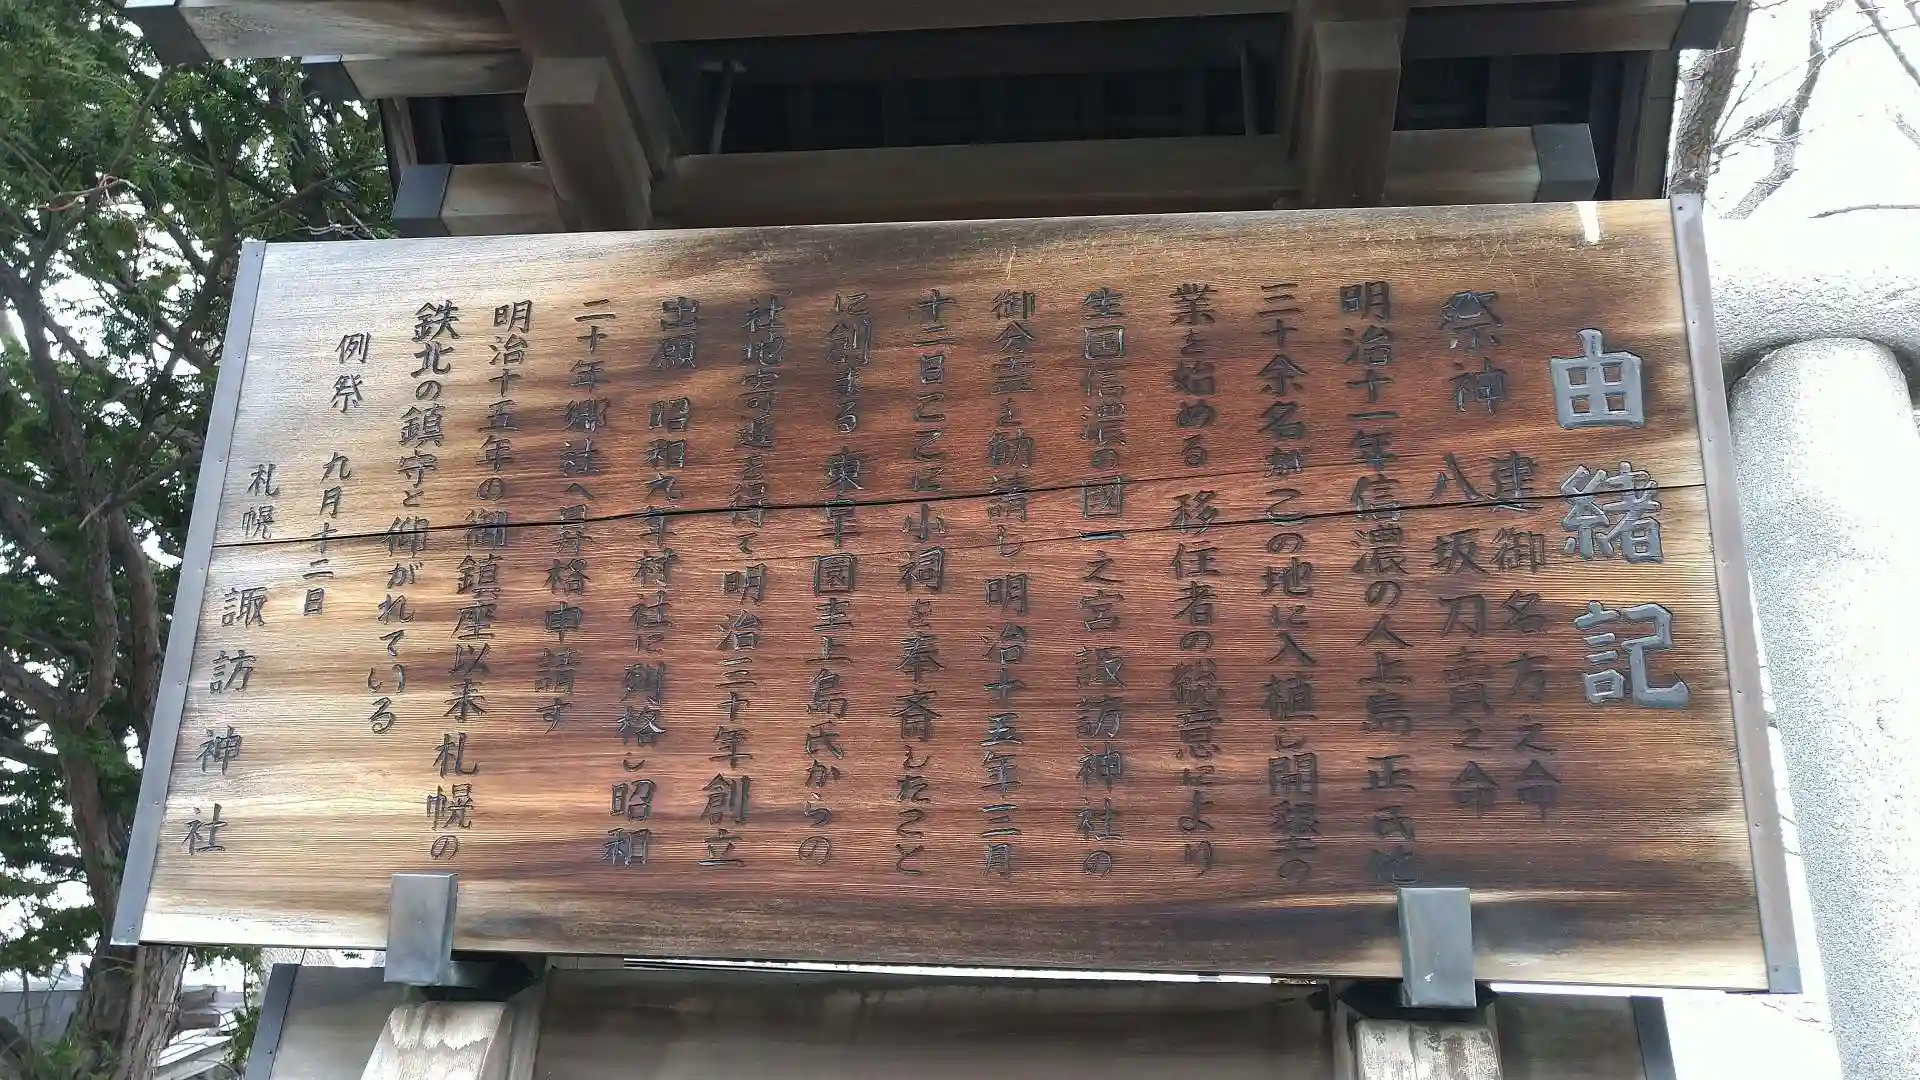 由緒記
祭神 建御名方之命
八坂刀売之命
明治十一年信濃の人上島 正氏他
三十余名がこの地に入植し開墾の
業を始める 移住者の総意により
生国信濃の國一之宮諏訪神社の
御分霊を勧請し 明治十五年三月
十二日ここに小祠を奉斎したこと
に創まる 東皐園主上島氏からの
社地寄進を得て 明治三十年創立
出願 昭和九年村社に列格し 昭和
二十年郷社へ昇格申請す
明治十五年の御鎮座以来 札幌の
鉄北の鎮守と仰がれている
例祭 九月十二日
札幌 諏訪神社